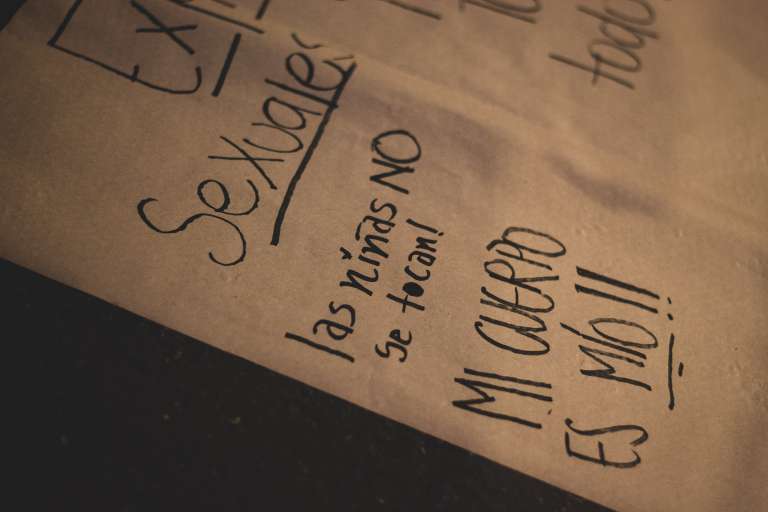 Sexuales
las niñas NO
se tocan!
MI CUERPO
ES MÍO!!
todo